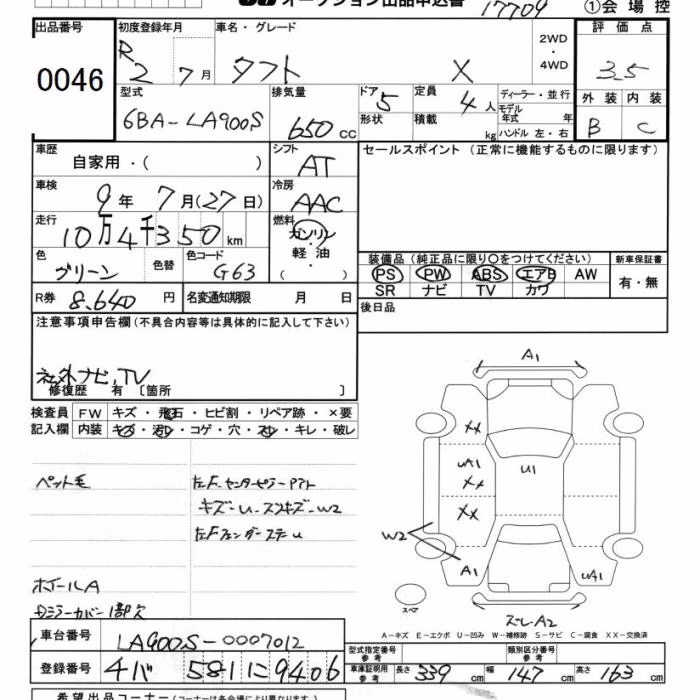 オークション出品申込書 17709 ①会場控
出品番号 0046
初度登録年月 R2 7月
車名・グレード タフト X
2WD・4WD
評価点 3.5
外装 B 内装 C
型式 6BA-LA900S
排気量 650 cc
ドア 5 形状
定員 4人 積載 kg
ディーラー・並行
モデル年式 年
ハンドル 左・右
車歴 自家用・( )
シフト AT
セールスポイント (正常に機能するものに限ります)
車検 9年 7月(27日)
冷房 AAC
走行 10万4千350km
燃料 ガソリン・軽油 ( )
色 グリーン 色替 色コード G63
装備品 (純正品に限り〇をつけてください) 新車保証書
PS PW ABS エアB AW 有・無
SR ナビ TV カワ
R券 8,640円 名変通知期限 月 日
後日品
注意事項申告欄 (不具合内容等は具体的に記入して下さい)
社外ナビ,TV
修復歴 有 〔箇所 〕
検査員 FW キズ・飛石・ヒビ割・リペア跡・×要
記入欄 内装 キズ・汚れ・コゲ・穴・スレ・キレ・破レ
ペット毛
左F.センターピラーアウト
キズ-U-スンキズ-W2
左FフェンダーステーU
ホイールA
カバー1部欠
A1
XX
UA1
XX
U1
XX
W2
A1
UA1
スペア
ズレA2
A-キズ E-エクボ U-凹み W-補修跡 S-サビ C-腐食 XX-交換済
車台番号 LA900S-0007012
型式指定番号 参考 類別区分番号 参考
登録番号 581に9406
車庫証明用 参考 長さ 339 cm 幅 147 cm 高さ 163 cm
希望出品コーナー